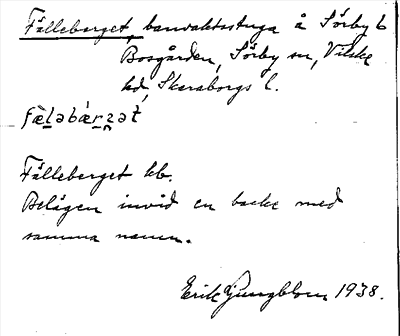 Fälleberget, banvaktsstuga å Sörby b
Bosgården, Sörby sn, Vilske
hd, Skaraborgs l.
Fälleberget hb.
Belägen invid en backe med
samma namn.
Erik Ljungblom 1938.